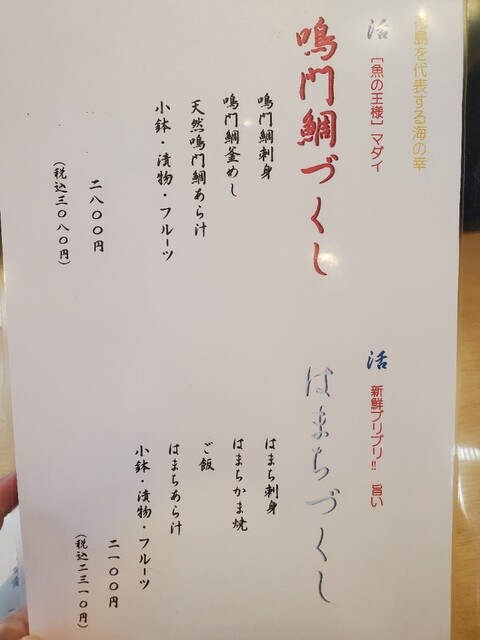 徳島を代表する海の幸
活 [魚の王様] マダイ
鳴門鯛づくし
鳴門鯛刺身
鳴門鯛釜めし
天然鳴門鯛あら汁
小鉢・漬物・フルーツ
二八〇〇円
(税込三〇八〇円)
活 新鮮プリプリ!! 旨い
はまちづくし
はまち刺身
はまちかま焼
ご飯
はまちあら汁
小鉢・漬物・フルーツ
二一〇〇円
(税込二三一〇円)